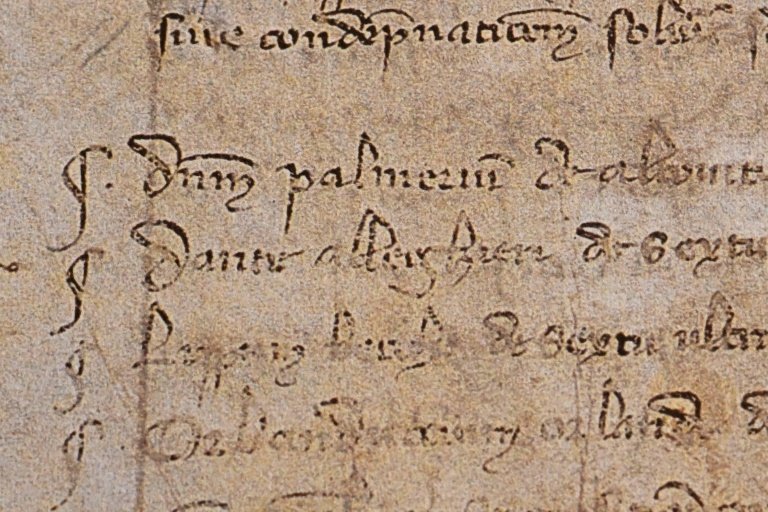 sive condēpnationem solv
dnm palmerium de altovit
dante alleghieri de sextu
Lippum becche de sextu ultra
Orlanduccium orlandi de